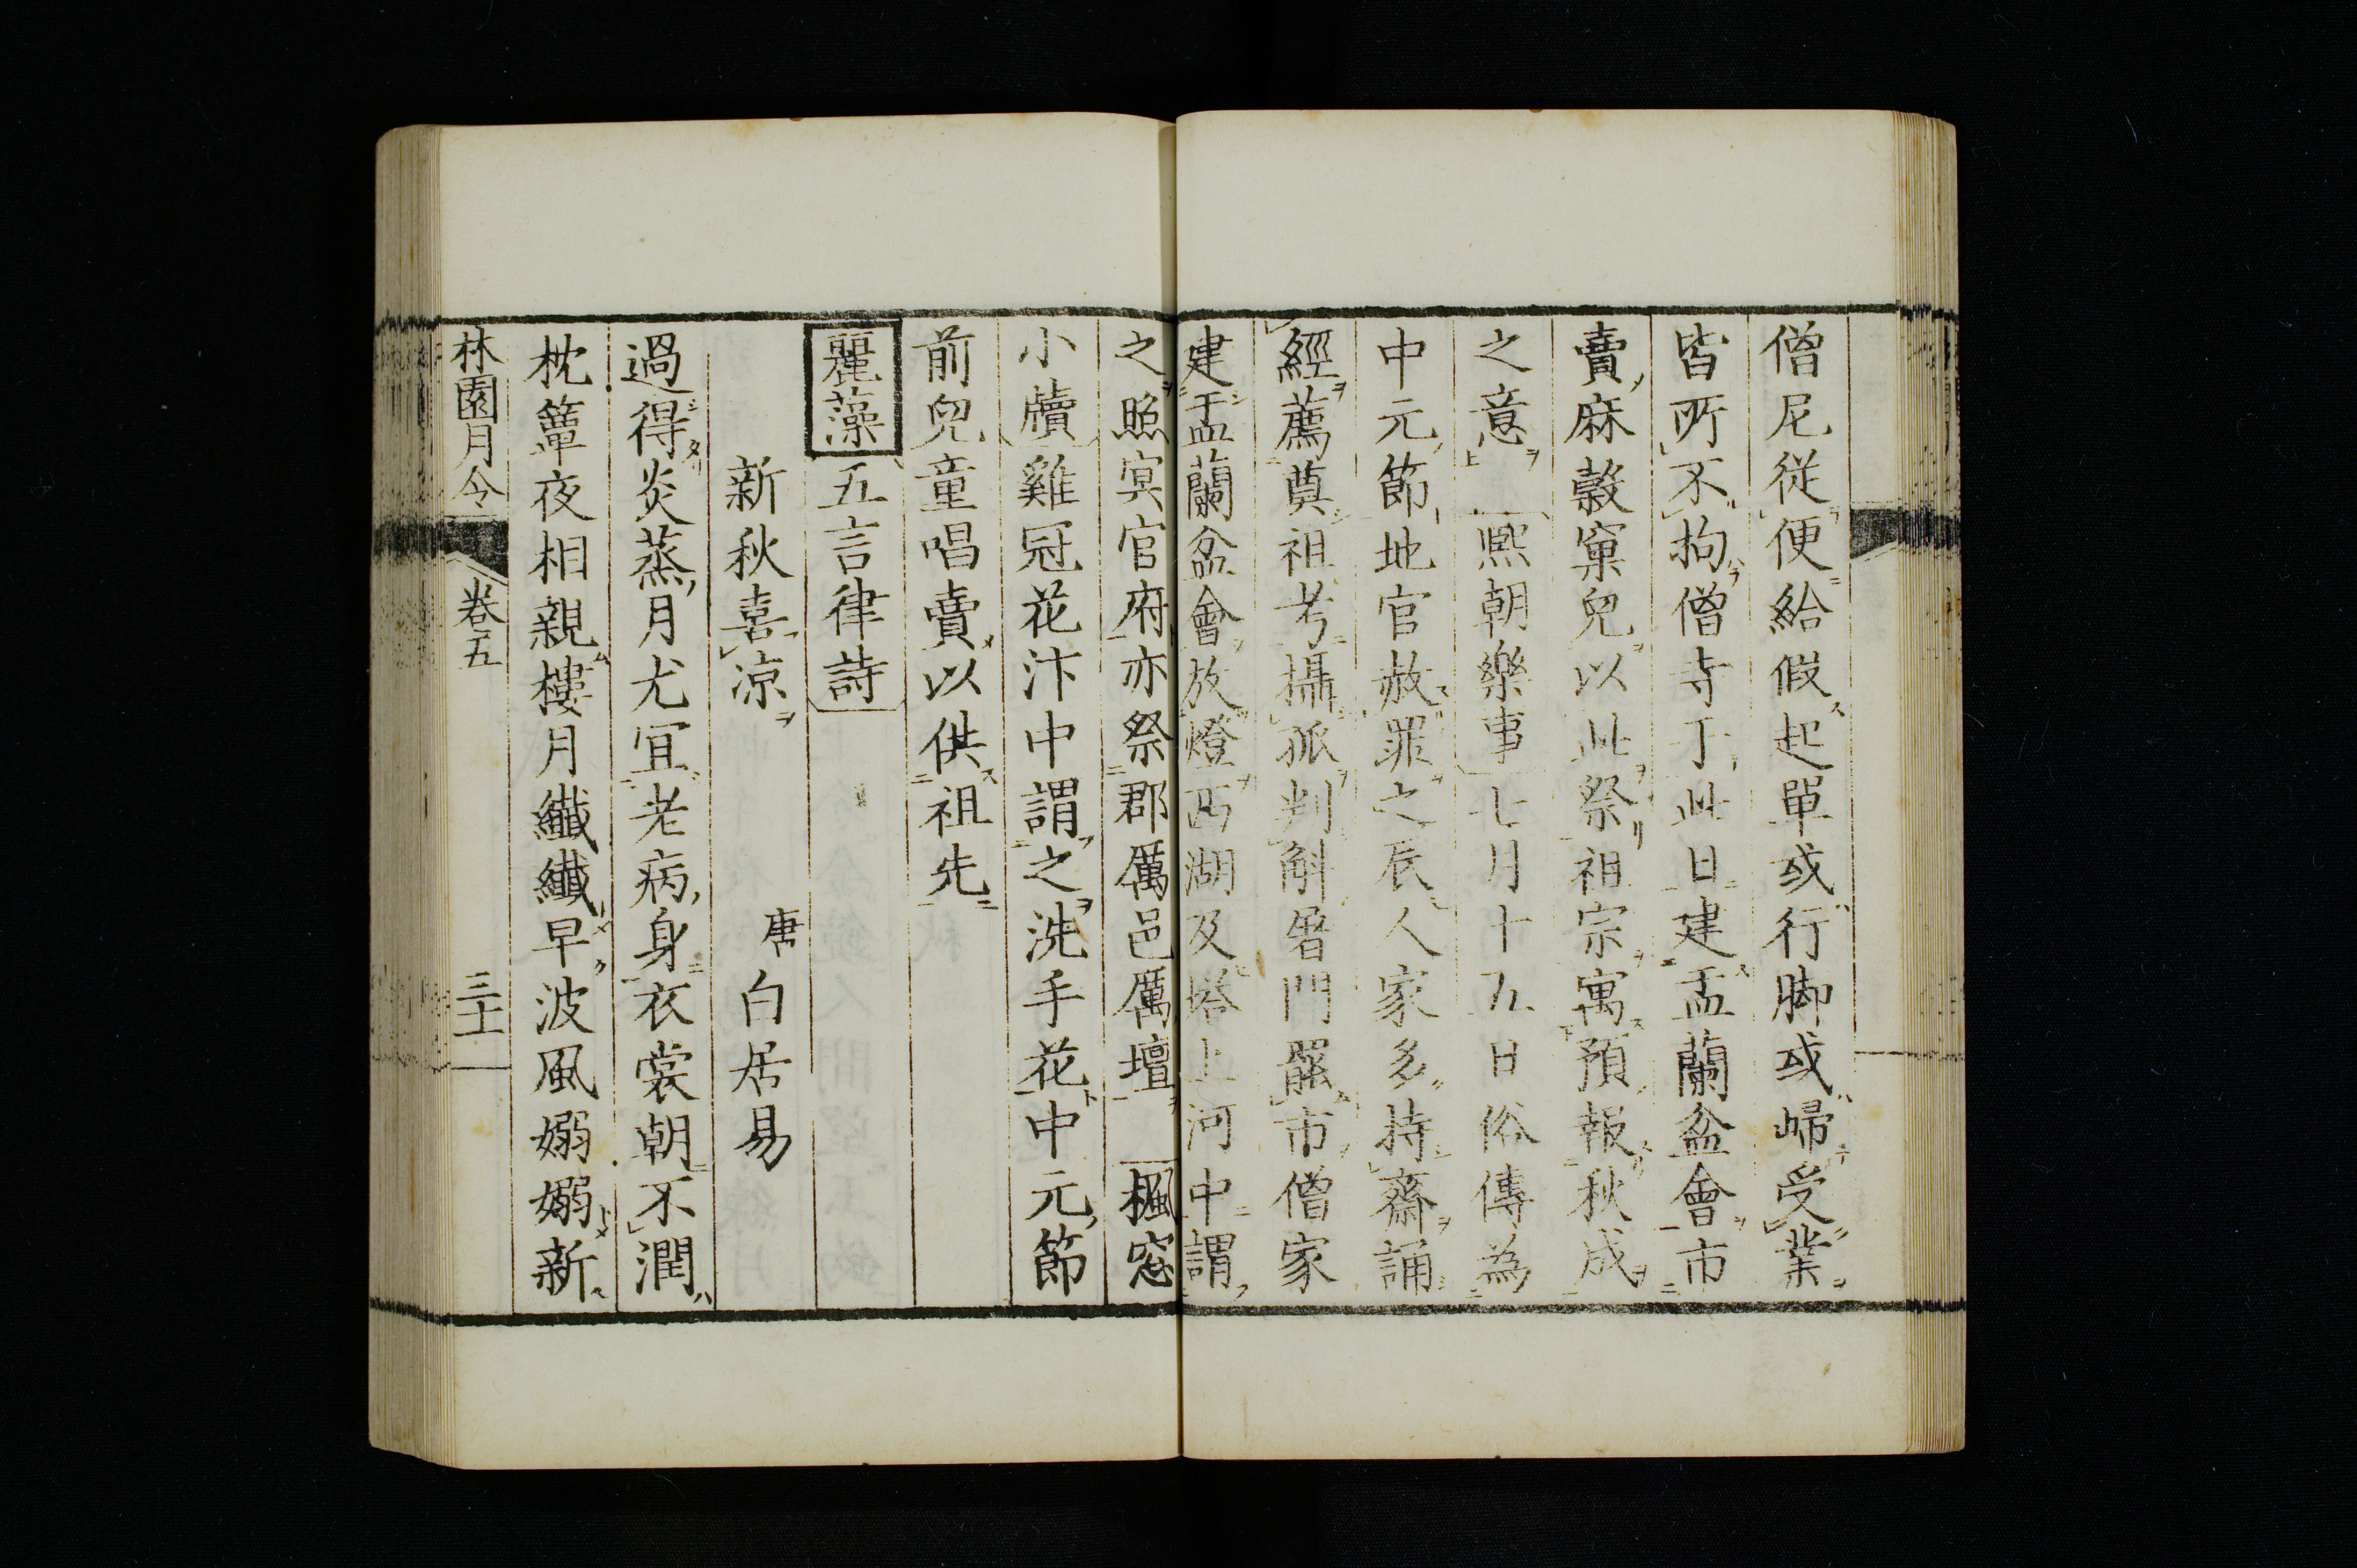 僧尼従便給假起單或行脚或歸受業
皆所不拘僧寺于此日建盂蘭盆會市
賣麻穀窠兒以此祭祖宗寓預報秋成
之意 熈朝樂事七月十五日俗傳為
中元節地官赦罪之辰人家多持齋誦
經薦奠祖考攝孤判斛屠門罷市僧家
建盂蘭盆會放燈西湖及塔上河中謂
之照冥官府亦祭郡厲邑厲壇 楓窓
小牘雞冠花汴中謂之洗手花中元節
前兒童唱賣以供祖先
麗藻 五言律詩
新秋喜凉 唐 白居易
過得炎蒸月尤宜老病身衣裳朝不潤
枕簟夜相親樓月纎纎早波風嫋嫋新
林園月令 卷五 三十一